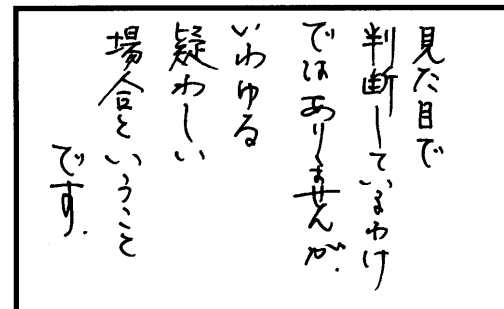 見た目で
判断しているわけ
ではありませんが.
いわゆる
疑わしい
場合ということ
です.